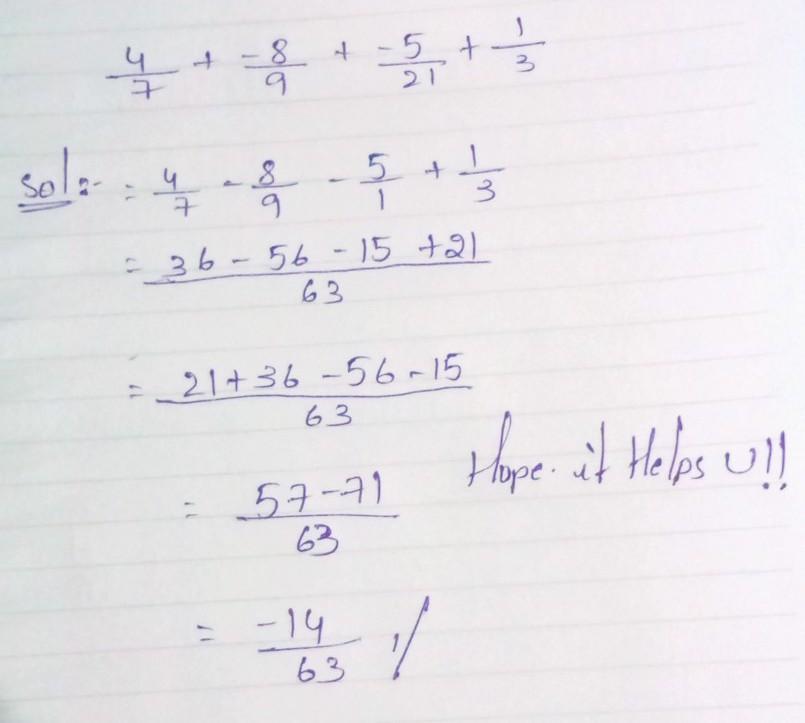 4/7 + -8/9 + -5/21 + 1/3
Sol:- = 4/7 - 8/9 - 5/1 + 1/3
= 36 - 56 - 15 + 21 / 63
= 21 + 36 - 56 - 15 / 63
Hope it Helps U!!
= 57 - 71 / 63
= -14/63 //